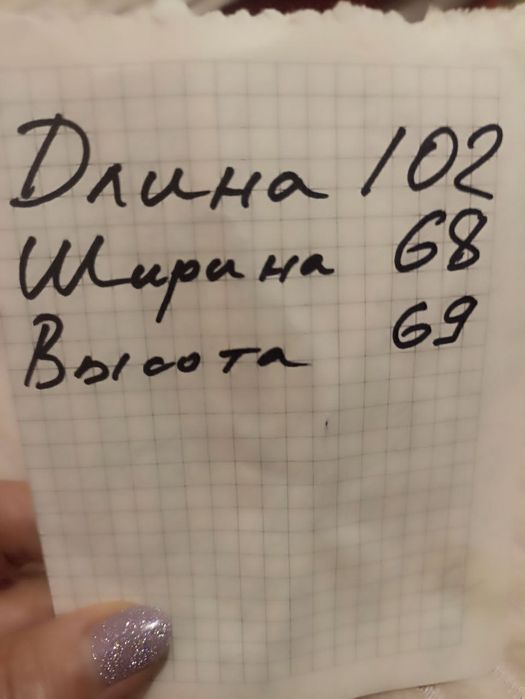 Длина 102
Ширина 68
Высота 69